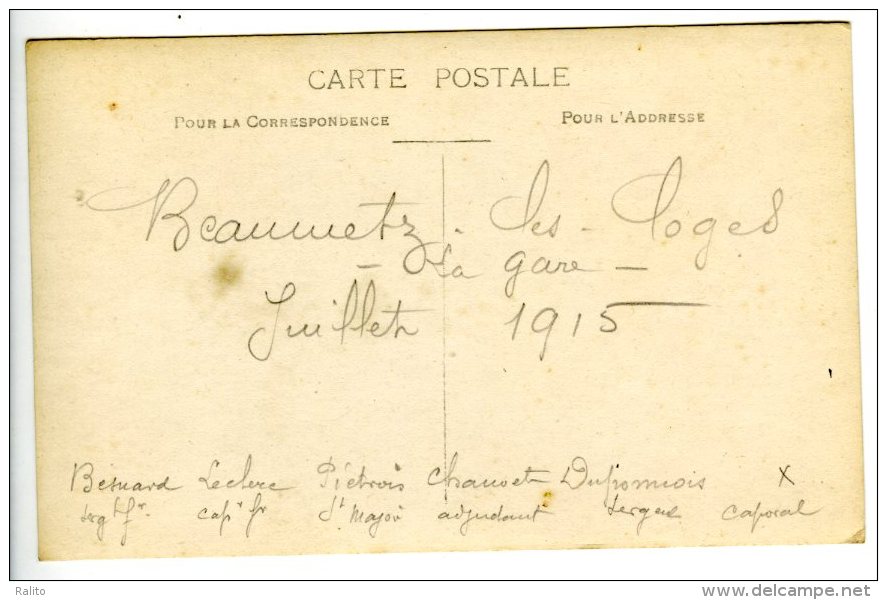 CARTE POSTALE
POUR LA CORRESPONDENCE POUR L'ADDRESSE
Beaumetz-les-Loges
- La gare -
Juillet 1915
Besnard Leclerc Piétrois Chauvet X
sergt fr. capl fr St Major adjudant sergent caporal
Ralito
www.delcampe.net